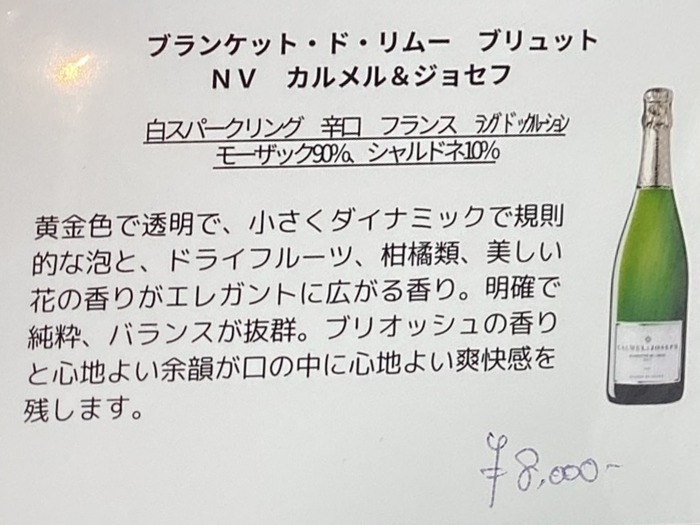 ブランケット・ド・リムー ブリュット
NV カルメル＆ジョセフ
白スパークリング 辛口 フランス ラングドックルーション
モーザック90%、シャルドネ10%
黄金色で透明で、小さくダイナミックで規則
的な泡と、ドライフルーツ、柑橘類、美しい
花の香りがエレガントに広がる香り。明確で
純粋、バランスが抜群。ブリオッシュの香り
と心地よい余韻が口の中に心地よい爽快感を
残します。
CALMEL & JOSEPH
¥8,000-